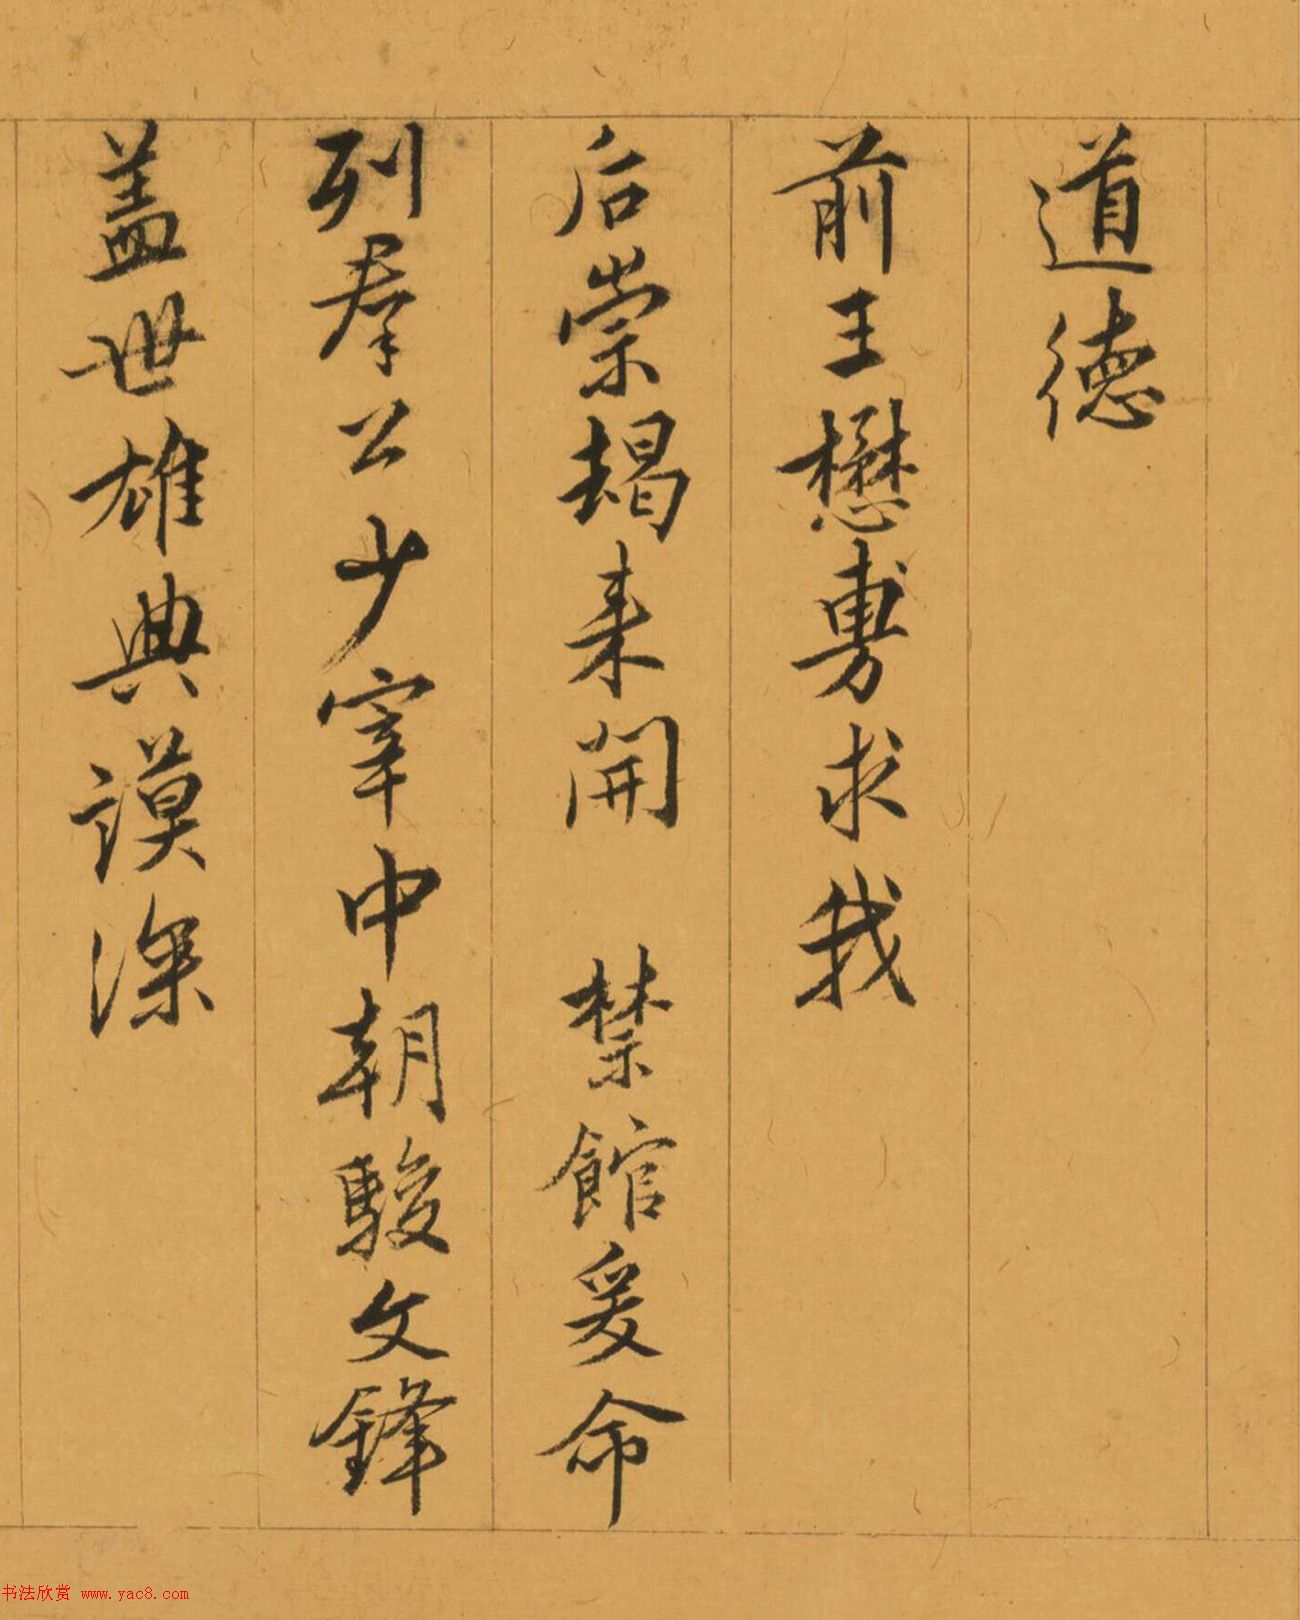 道德
前王懋専求我
后崇朅来開 禁館爰命
列羣公少宰中朝駿文鋒
盖世雄典謨深
书法欣赏 www.yac8.com